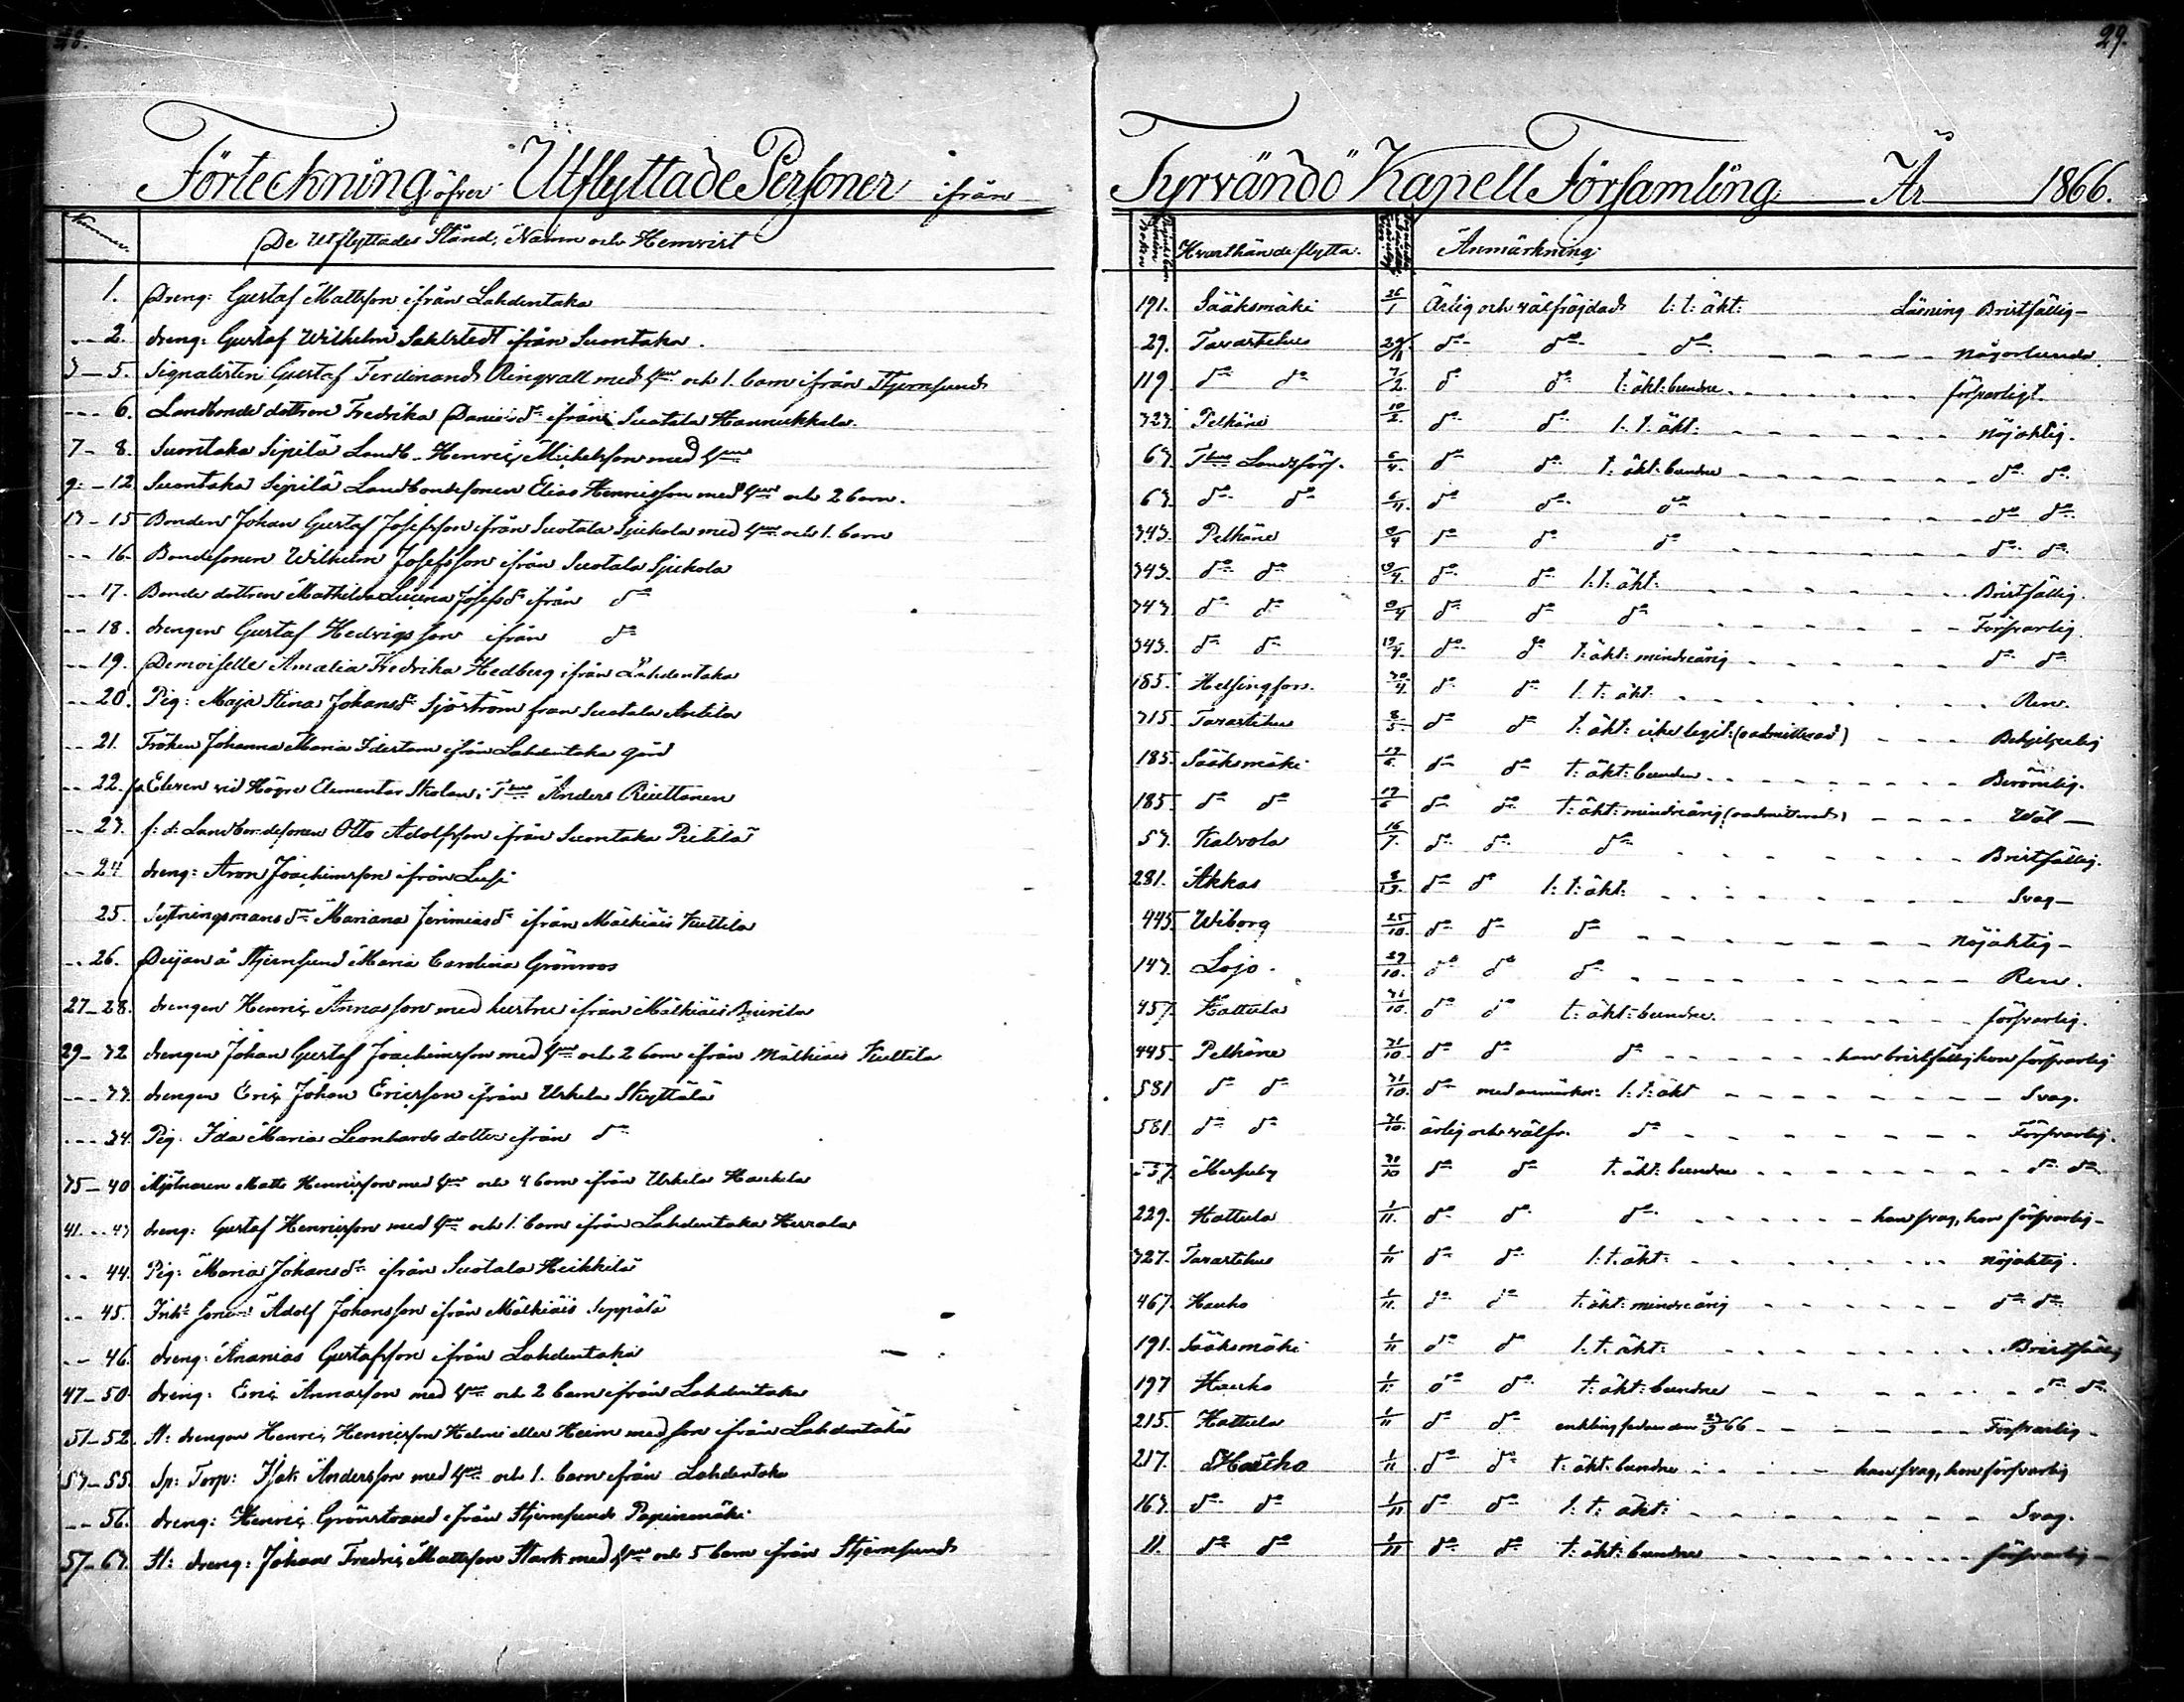 28.
29.
Förteckning öfver Utflyttade Personer ifrån Tyrvändö Kapell Församling År 1866.
Nummer. De Utflyttades Stånd, Namn och Hemvist Hvarthän de flytta. Anmärkning
1. Dreng: Gustaf Mattsson ifrån Lahdentaka 191. Sääksmäki 26/1 Ärlig och välfräjdad l: t: äkt: Läsning Bristfällig –
2. dreng: Gustaf Wilhelm Sahlstedt ifrån Suontaka. 29. Tavastehus do do do någorlunda
3–5. Signalisten Gustaf Ferdinand Ringvall med hust och 1. barn ifrån Stjernsund 119 do do 7/2. do do t: äkt: bundne försvarligt
6. Landbonde dottren Fredrika Daniels dr ifrån Suotala Hannukkala. 323. Pelkäne 10/2. do do l. t. äkt: nöjaktig.
7–8. Suontaka Sipilä Landb. Henric Michelsson med hust 67. Thus Landsförs. 6/4. do do t: äkt: bundne do do
9–12 Suontaka Sipilä Landbondesonen Elias Henricsson med hust och 2 barn. 67. do do do do do do do
13–15 Bonden Johan Gustaf Josefsson ifrån Suotala Sjukola med hust och 1. barn 343. Pelkäne do do do do do
16. Bondesonen Wilhelm Josefsson ifrån Suotala Sjukola 343. do do do do l: t: äkt: Bristfällig.
17. Bonde dottren Mathilda Lucina Josefs dr ifrån do 343. do do do do do Försvarlig.
18. drengen Gustaf Hedvigsson ifrån do 343. do do do do t: äkt: mindreårig do do
19. Demoiselle Amalia Fredrika Hedberg ifrån Lahdentaka 185. Helsingfors. 30/4. do do l: t: äkt: Ren.
20. Pig: Maja Stina Johansdr Sjöström fran Suotala Anttila 315. Tavastehus 8/5. do do t: äkt: icke legit: (oadmitterad)
21. Fröken Johanna Maria Idestam ifrån Lahdentaka gård 185. Sääksmäki do do t: äkt: bunden Berömlig.
22. Eleven vid Högre Elementar Skolan i Thus Anders Riuttanen 185. do do do do t: äkt: mindreårig (oadmitterad) Wäl –
23. f: d: Landbondesonen Otto Adolfsson ifrån Suontaka Pietilä 57. Kalvola 16/7. do do do Bristfällig.
24 dreng: Aron Joachimsson ifrån Lusi 281. Akkas do do l: t: äkt: Svag –
25. Sytningsmans dr Mariana Jeremias dr ifrån Mälkiäis Kuttila 445. Wiborg 25/10. do do do nöjaktig –
26. Pijan å Stjernsund Maria Carolina Grönroos 143. Lojo. 29/10. do do do Ren.
27–28. drengen Henric Annasson med hustru ifrån Mälkiäis 457. Hattula 31/10. do do t: äkt: bundne. försvarlig.
29–32 drengen Johan Gustaf Joachimsson med hust och 2 barn ifrån Mälkiäis Kuttila 445. Pelkäne 31/10. do do do han bristfällig hon försvarlig
33. drengen Eric Johan Ericsson ifrån Urhela Skyttälä 581 do do 31/10. do med anmärkn: l: t: äkt Svag.
34. Pig. Ida Maria Leonhards dotter ifrån do 581. do do 31/10. ärlig och välfr. do Försvarlig.
35–40 Mjölnaren Matts Henricsson med hust och 4 barn ifrån Urhela Haukela Messuby 31/10 do do t: äkt: bundne do do
41–43 dreng: Gustaf Henricsson med hust och 1. barn ifrån Lahdentaka Herrala 229. Hattula 1/11. do do do han svag, hon försvarlig –
44. Pig: Maria Johans dr ifrån Suotala Heikkilä 327. Tavastehus 1/11 do do l: t: äkt: nöjaktig.
45. Inhs sonen Adolf Johansson ifrån Mälkiäis Seppälä 467. Hauho 1/11. do do t: äkt: mindreårig do do
46. dreng: Ananias Gustafsson ifrån Lahdentaka 191. Sääksmäki 1/11 do do l: t: äkt: Bristfällig
47–50 dreng: Eric Annasson med hust och 2 barn ifrån Lahdentaka 197 Hauho 1/11. do do t: äkt: bundne do do
51–52. St: drengen Henric Henricsson Helmi eller Heim med son ifrån Lahdentaka 215. Hattula 1/11 do do enkling sedan den 66 Försvarlig –
53–55. Sp: Torp: Isak Andersson med hust och 1. barn ifrån Lahdentaka 217. Hauho 1/11 do do t: äkt: bundne han svag, hon försvarlig
56. dreng: Henric Grönstrand ifrån Stjernsund Papinmäki 163. do do 1/11 do do l: t: äkt: Svag.
57–63. St: dreng: Johan Fredric Mattsson Stark med hust och 5 barn ifrån Stjernsund 11. do do 1/11 do do t: äkt: bundne försvarlig –